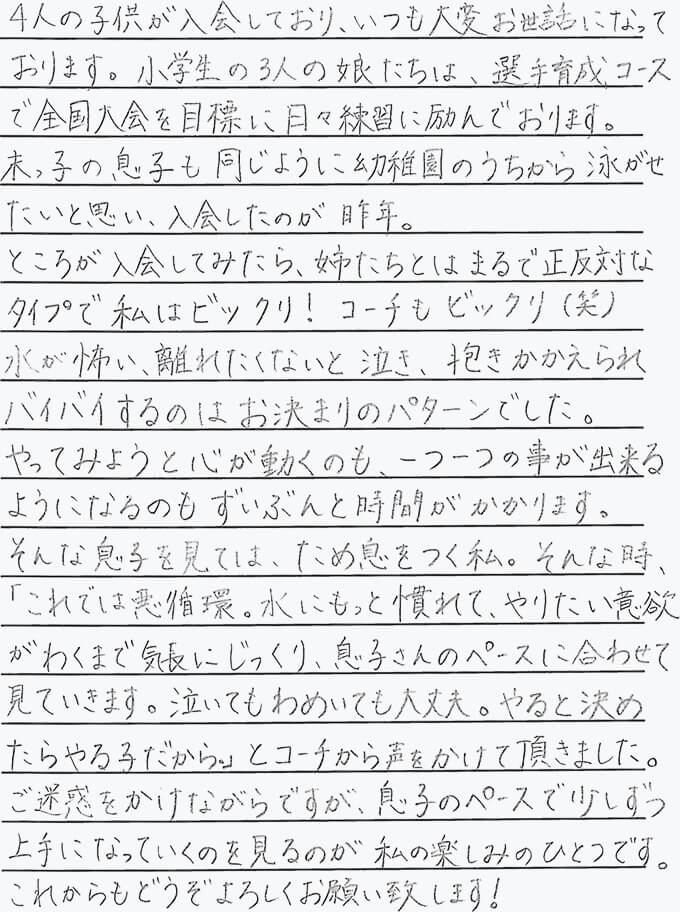 4人の子供が入会しており、いつも大変お世話になって
おります。小学生の3人の娘たちは、選手育成コース
で全国大会を目標に日々練習に励んでおります。
末っ子の息子も同じように幼稚園のうちから泳がせ
たいと思い、入会したのが昨年。
ところが入会してみたら、姉たちとはまるで正反対な
タイプで私はビックリ!コーチもビックリ(笑)
水が怖い、離れたくないと泣き、抱きかかえられ
バイバイするのはお決まりのパターンでした。
やってみようと心が動くのも、一つ一つの事が出来る
ようになるのもずいぶんと時間がかかります。
そんな息子を見ては、ため息をつく私。そんな時、
「これでは悪循環。水にもっと慣れて、やりたい意欲
がわくまで気長にじっくり、息子さんのペースに合わせて
見ていきます。泣いてもわめいても大丈夫。やると決め
たらやる子だから。」とコーチから声をかけて頂きました。
ご迷惑をかけながらですが、息子のペースで少しずつ
上手になっていくのを見るのが私の楽しみのひとつです。
これからもどうぞよろしくお願い致します!